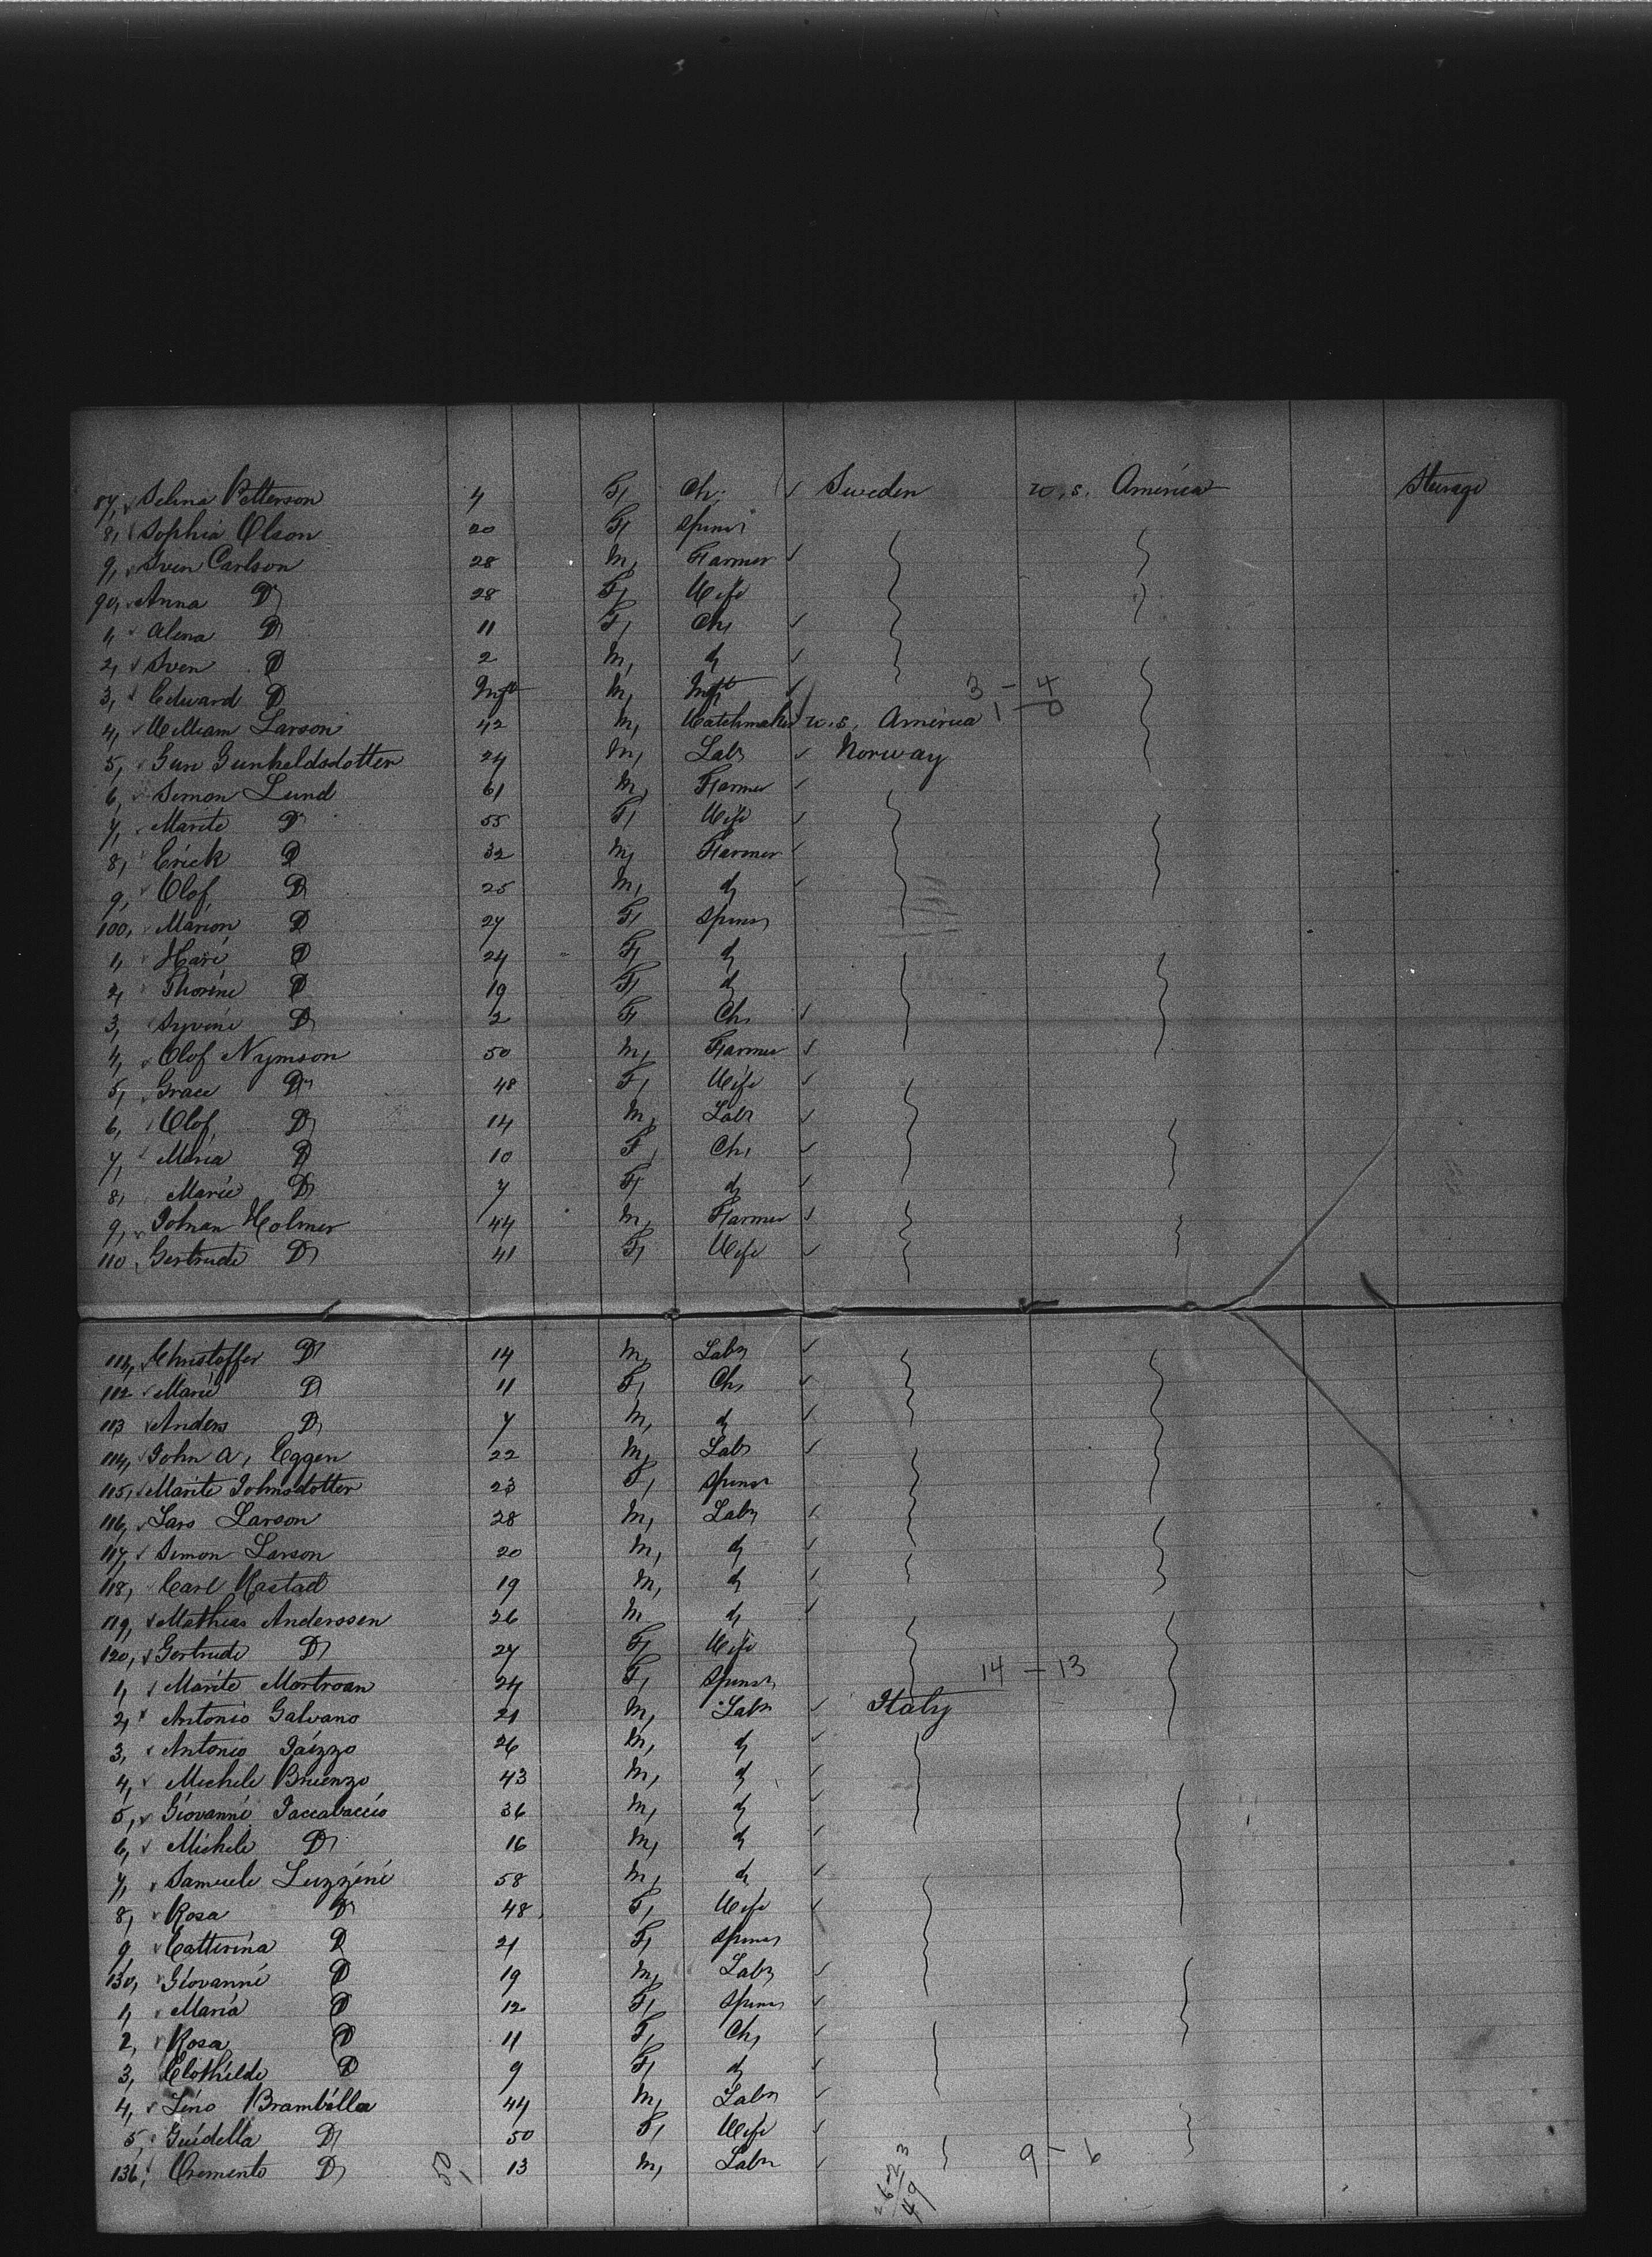 87, Selina Petterson 4 F, Ch. Sweden U.S. America Steerage
8, Sophia Olson 20 F, Spinsr
9, Sven Carlson 28 M, Farmer
90, Anna Do 28 F, Wife
1, Alma Do 11 F, Ch,
2, Sven Do 2 M, do
3, Edward Do Inft M, Inft 3 - 4
4, William Larson 42 M, Watchmaker U.S. America 1 - 0
5, Gun Gunheldsdotter 24 M, Labr Norway
6, Simon Lund 61 M, Farmer
7, Marite Do 55 F, Wife
8, Erick Do 32 M, Farmer
9, Olof Do 25 M, do
100, Marion Do 27 F, Spinsr
1, Kari Do 24 F, do
2, Thorine Do 19 F, do
3, Syvine Do 2 F, Ch,
4, Olof Nymson 50 M, Farmer
5, Grace Do 48 F, Wife
6, Olof Do 14 M, Labr
7, Maria Do 10 F, Ch,
8, Marie Do 7 F, do
9, Johan Holmer 44 M, Farmer
110, Gertrude Do 41 F, Wife
111, Christoffer Do 14 M, Labr
112 Marie Do 11 F, Ch,
113 Anders Do 7 M, do
114, John A, Eggen 22 M, Labr
115, Marite Johnsdotter 23 F, Spinsr
116, Lars Larson 28 M, Labr
117, Simon Larson 20 M, do
118, Carl Hastad 19 M, do
119, Mathias Anderssen 26 M do
120, Gertrude Do 27 F, Wife
1, Marite Mortroan 24 F, Spinsr 14 - 13
2, Antonio Galvano 21 M, Labr Italy
3, Antonio 26 M, do
4, Michele Brienzo 43 M, do
5, Giovanni 36 M, do
6, Michele Do 16 M, do
7, Samuele Luzzini 58 M, do
8, Rosa Do 48 F, Wife
9, Catterina Do 21 F, Spinsr
130, Giovanni Do 19 M, Labr
1, Maria Do 12 F, Spinsr
2, Rosa Do 11 F, Ch,
3, Clothilde Do 9 F, do
4, Lino Brambilla 44 M, Labr
5, Guidella Do 50 F, Wife
136, Do 50 13 M, Labr 26-23 9 - 6
49